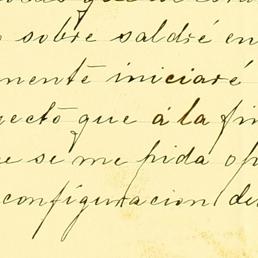 sobre saldré en
mente iniciaré
yecto que á la fin
e si me pida op
configuracion de